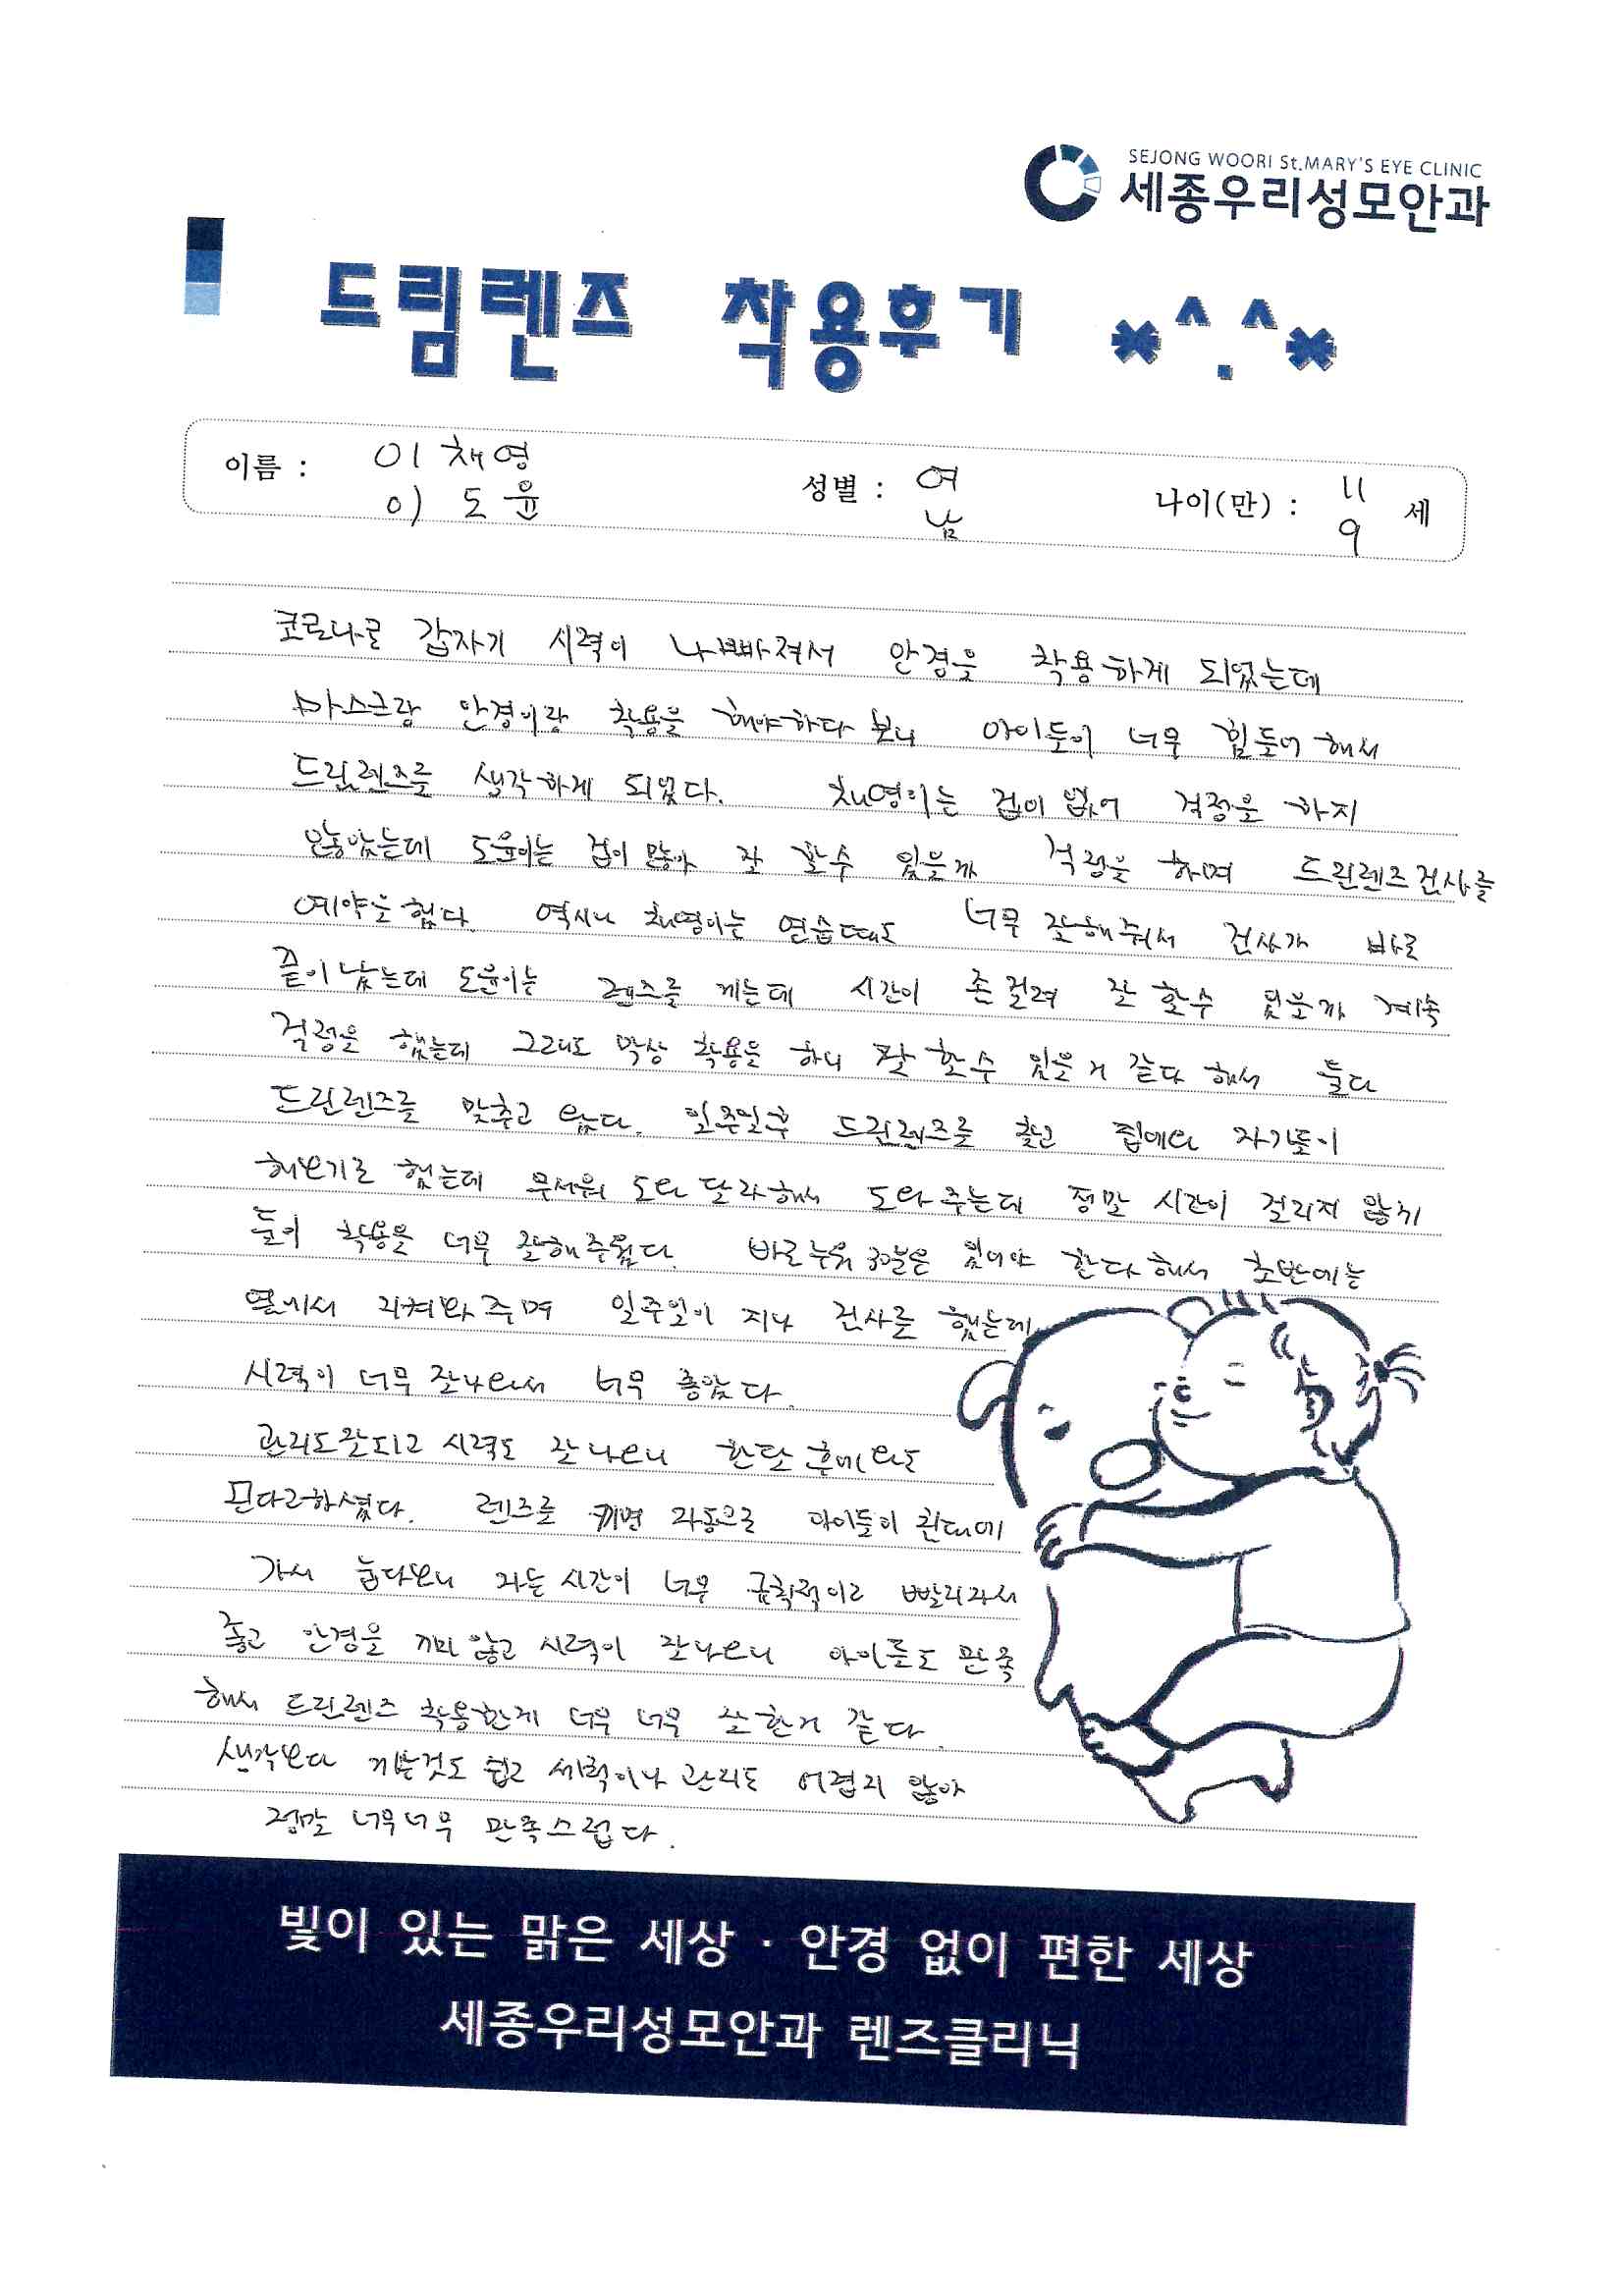 SEJONG WOORI St.MARY'S EYE CLINIC
세종우리성모안과
드림렌즈 착용후기 *^.^*
이름 : 이채영 성별 : 여 나이(만) : 11 세
이도윤 남 9
코로나로 갑자기 시력이 나빠져서 안경을 착용하게 되었는데
마스크랑 안경이랑 착용을 해야하다 보니 아이들이 너무 힘들어 해서
드림렌즈를 생각하게 되었다. 채영이는 겁이 없어 걱정을 하지
않았는데 도윤이는 겁이 많아 잘 할수 있을까 걱정을 하며 드림렌즈 검사를
예약을 했다. 역시나 채영이는 연습때도 너무 잘해줘서 검사가 바로
끝이 났는데 도윤이는 렌즈를 끼는데 시간이 좀 걸려 잘 할수 있을까 계속
걱정을 했는데 그래도 막상 착용을 하니 잘 할수 있을거 같다 해서 둘다
드림렌즈를 맞추고 왔다. 일주일후 드림렌즈를 찾고 집에와 자기들이
해보기로 했는데 무서워 도와 달라해서 도와주는데 정말 시간이 걸리지 않게
둘이 착용을 너무 잘해주웠다. 바로누워 30분은 있어야 한다해서 초반에는
옆에서 지켜봐 주며 일주일이 지나 검사를 했는데
시력이 너무 잘나와서 너무 좋았다.
관리도잘되고 시력도 잘 나오니 한달 후에 와도
된다고하셨다. 렌즈를 끼면 자동으로 아이들이 침대에
가서 눕다보니 자는 시간이 너무 규칙적이고 빨리자서
좋고 안경을 끼지 않고 시력이 잘나오니 아이들도 만족
해서 드림렌즈 착용한게 너무 너무 잘한거 같다.
생각보다 끼는것도 쉽고 세척이나 관리도 어렵지 않아
정말 너무너무 만족스럽다.
빛이 있는 맑은 세상 · 안경 없이 편한 세상
세종우리성모안과 렌즈클리닉